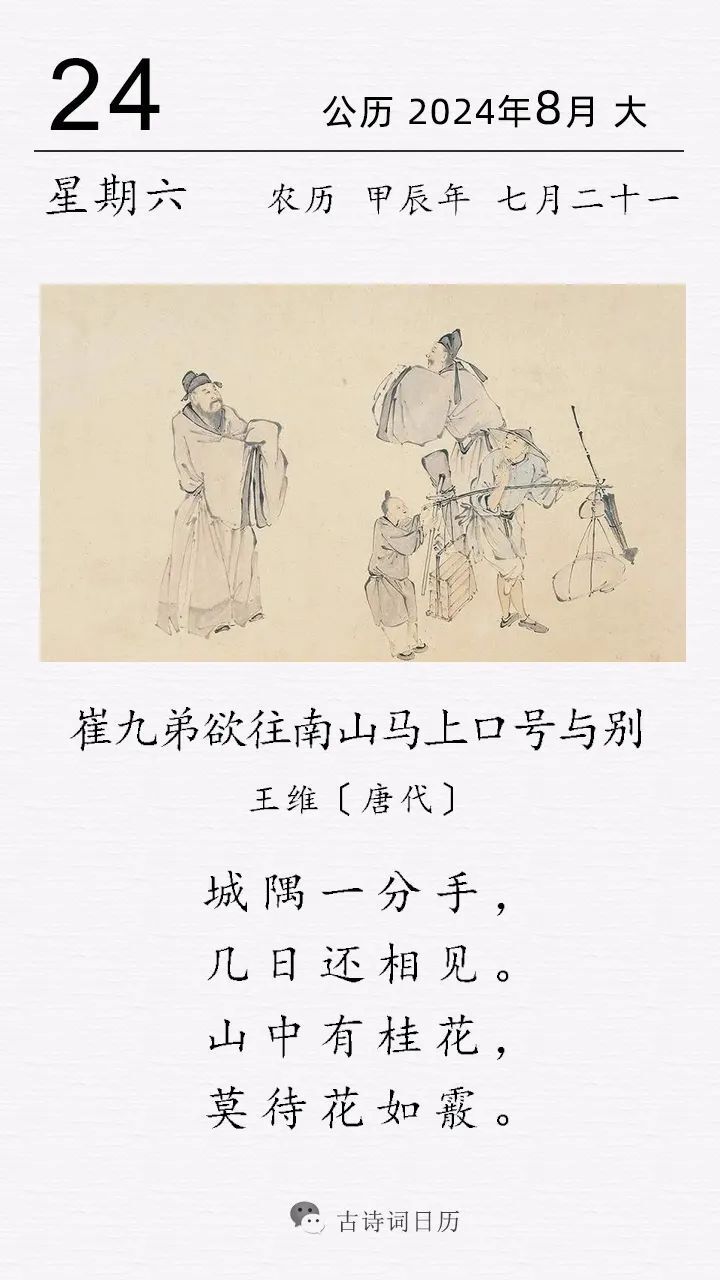 24
公历 2024年8月 大
星期六 农历 甲辰年 七月二十一
崔九弟欲往南山马上口号与别
王维〔唐代〕
城隅一分手，
几日还相见。
山中有桂花，
莫待花如霰。
古诗词日历